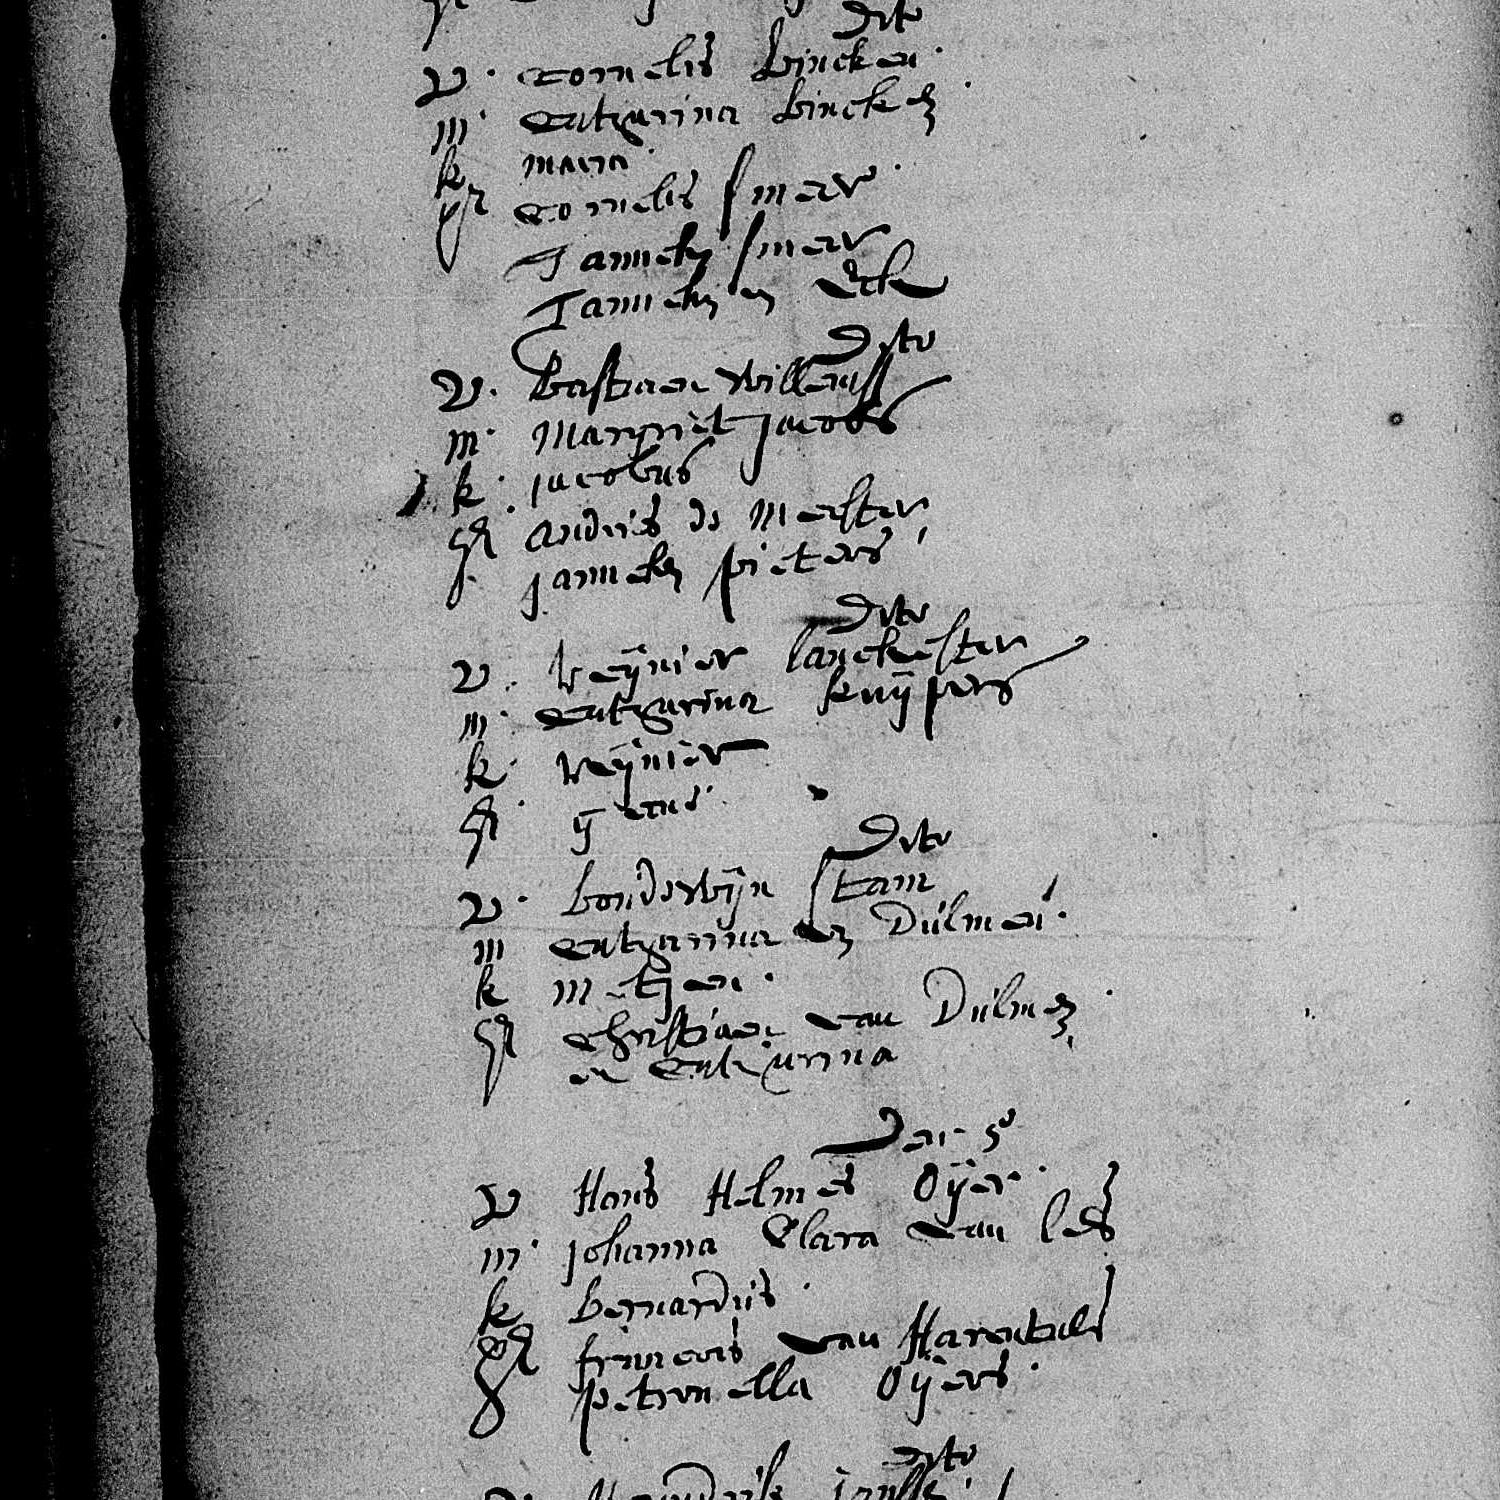 Dito
V. Cornelis Lincken.
m. Catharina Lincken.
k. maria.
gt Cornelis Smaer.
Janneken Smaer
Janneken Eck
Dito
V. Bastiaen Willems
m. Margriet Jacobs
k. jacobus
gt Andries de Meester
janneken pieters
Dito
V. Reijnier lanckester
m. Catharina kuijpers
k. Reijnier
gt.
Dito
V. boudewijn Stam
m Catharina van Dulmen.
k Matjen.
gt Christiaen van Dulmen.
en Catharina
Den 5e
V Hans Helmes Oijer.
m. johanna Clara van Les
k Bernardus.
gt francois van Harentals
petronella Oijers.
Dito
V. Hendrik